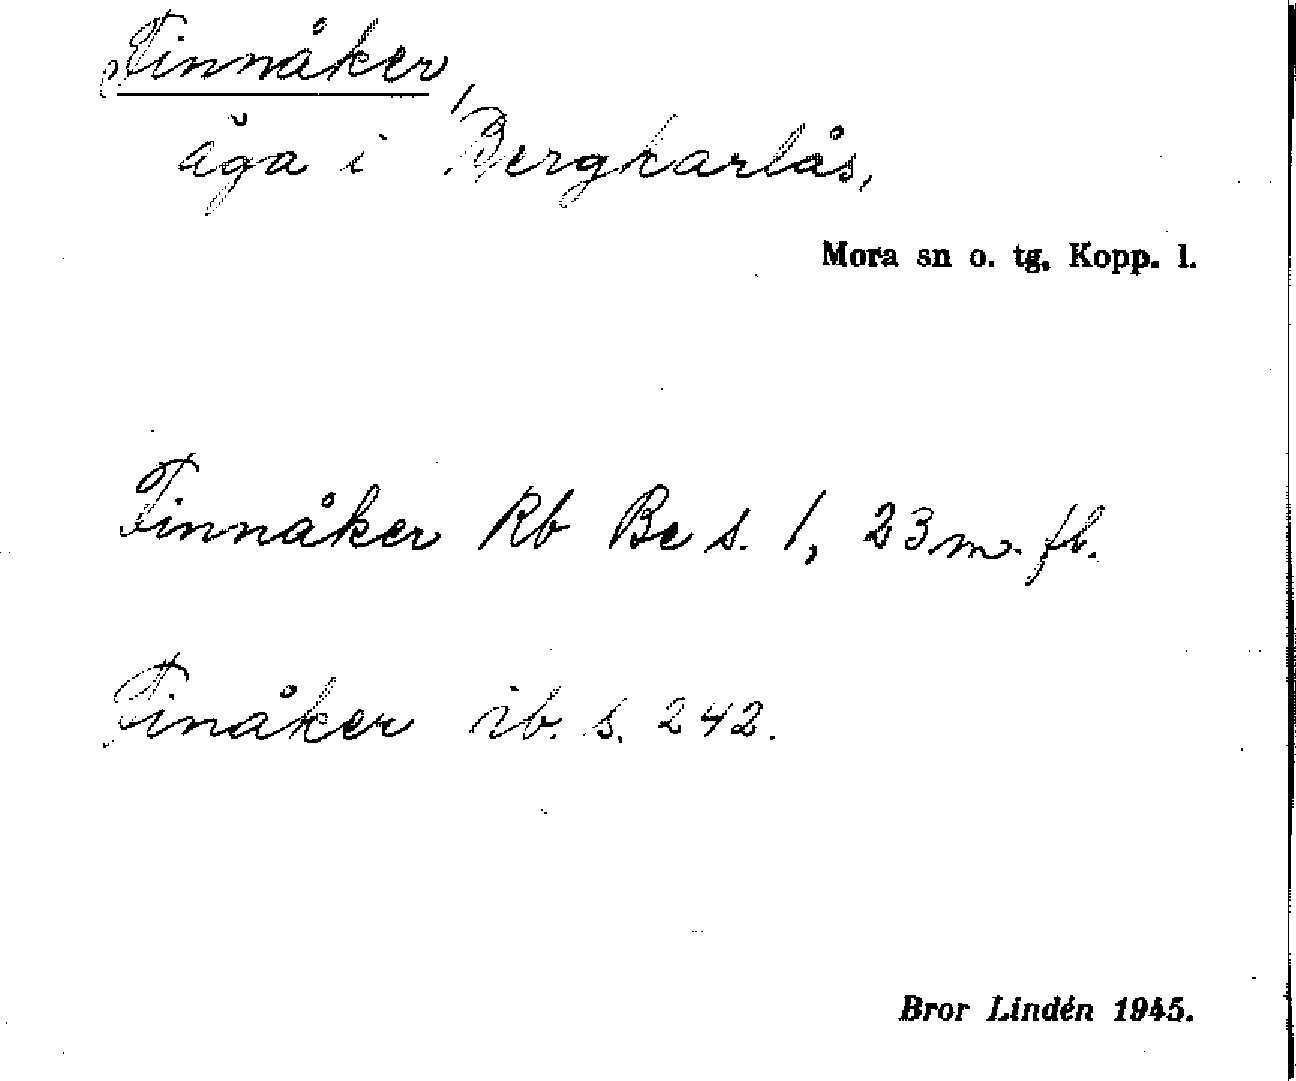 Finnåker,
äga i Bergkarlås,
Mora sn o. tg. Kopp. l.
Finnåker Rb Be s. 1, 23 m. fl.
Finåker ib. s. 242.
Bror Lindén 1945.